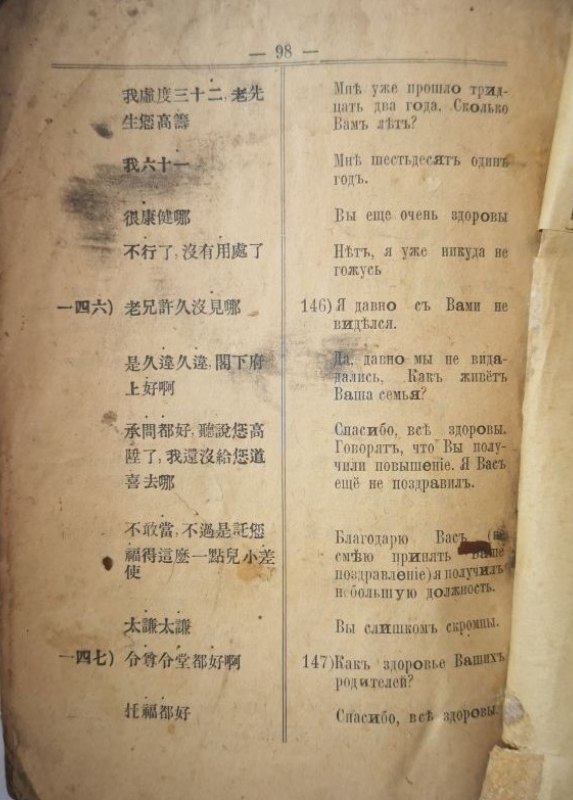 — 98 —
我虛度三十二, 老先
生您高壽
我六十一
很康健哪
不行了, 沒有用處了
一四六) 老兄許久沒見哪
是久違久違, 閣下府
上好啊
承問都好, 聽說您高
陞了, 我還沒給您道
喜去哪
不敢當, 不過是託您
福得這麼一點兒小差
使
太謙太謙
一四七) 令尊令堂都好啊
托福都好
Мнѣ уже прошло трид-
цать два года. Сколько
Вамъ лѣтъ?
Мнѣ шестьдесятъ одинъ
годъ.
Вы еще очень здоровы
Нѣтъ, я уже никуда не
гожусь
146) Я давно съ Вами не
видѣлся.
Да, давно мы не вида-
лались. Какъ живётъ
Ваша семья?
Спасибо, всѣ здоровы.
Говорятъ, что Вы полу-
чили повышеніе. Я Васъ
ещё не поздравилъ.
Благодарю Васъ (не
смѣю принять Ваше
поздравленіе) я получилъ
небольшую должность.
Вы слишкомъ скромны.
147) Какъ здоровье Вашихъ
родителей?
Спасибо, всѣ здоровы.